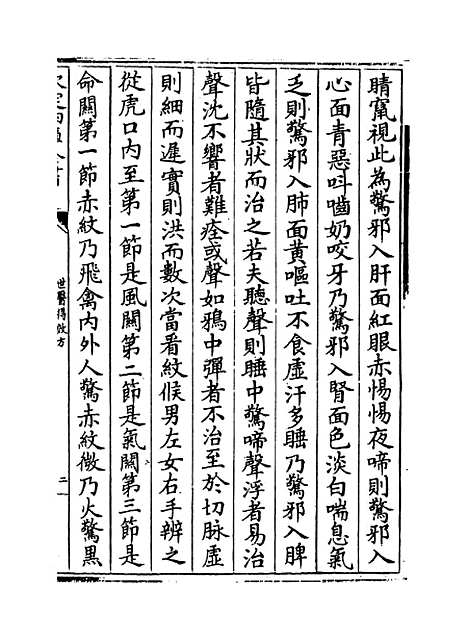 睛竄視此為驚邪入肝面紅眼赤惕惕夜啼則驚邪入
心面青惡呌嚙奶咬牙乃驚邪入腎面色淡白喘息氣
乏則驚邪入肺面黃嘔吐不食虛汗多睡乃驚邪入脾
皆隨其狀而治之若夫聽聲則睡中驚啼聲浮者易治
聲沈不響者難痊或聲如鴉中彈者不治至於切脉虛
則細而遲實則洪而數次當看紋候男左女右手辨之
從虎口內至第一節是風關第二節是氣關第三節是
命關第一節赤紋乃飛禽內外人驚赤紋微乃火驚黑
世醫得效方